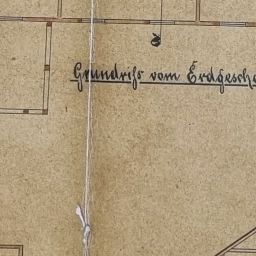 Grundriss vom Erdgescho